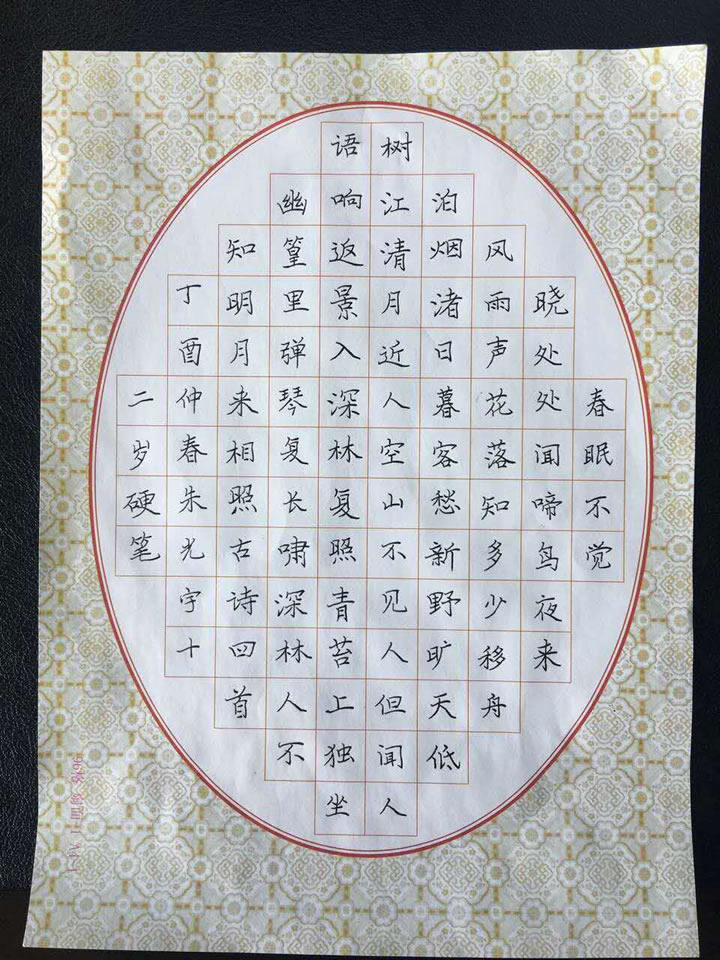 春眠不觉
晓处处闻啼鸟夜来
风雨声花落知多少移舟
泊烟渚日暮客愁新野旷天低
树江清月近人空山不见人但闻人
语响返景入深林复照青苔上独坐
幽篁里弹琴复长啸深林人不
知明月来相照古诗四首
丁酉仲春朱光宇十
二岁硬笔